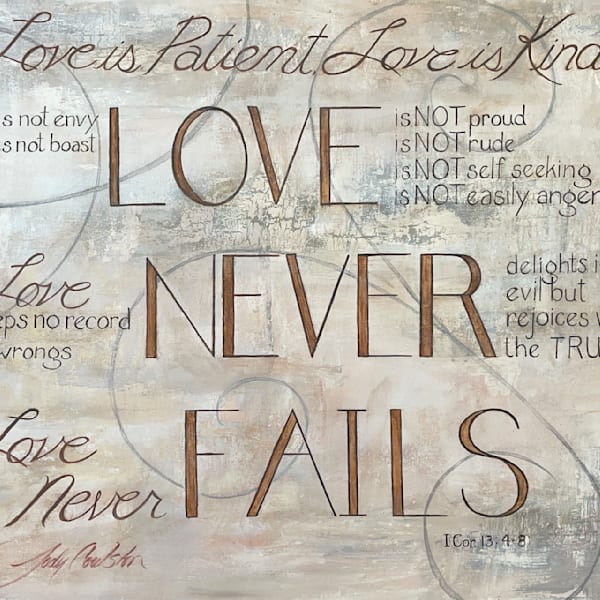 Love is Patient, Love is Kind
s not envy
es not boast
LOVE
is NOT proud
is NOT rude
is NOT self seeking
is NOT easily anger
Love
eps no record
wrongs
NEVER
delights i
evil but
rejoices w
the TRU
Love
Never
FAILS
I Cor 13, 4-8
Jody